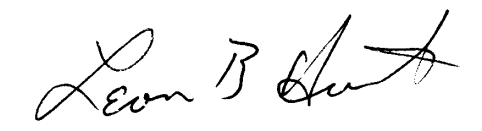 Leon B Hunt